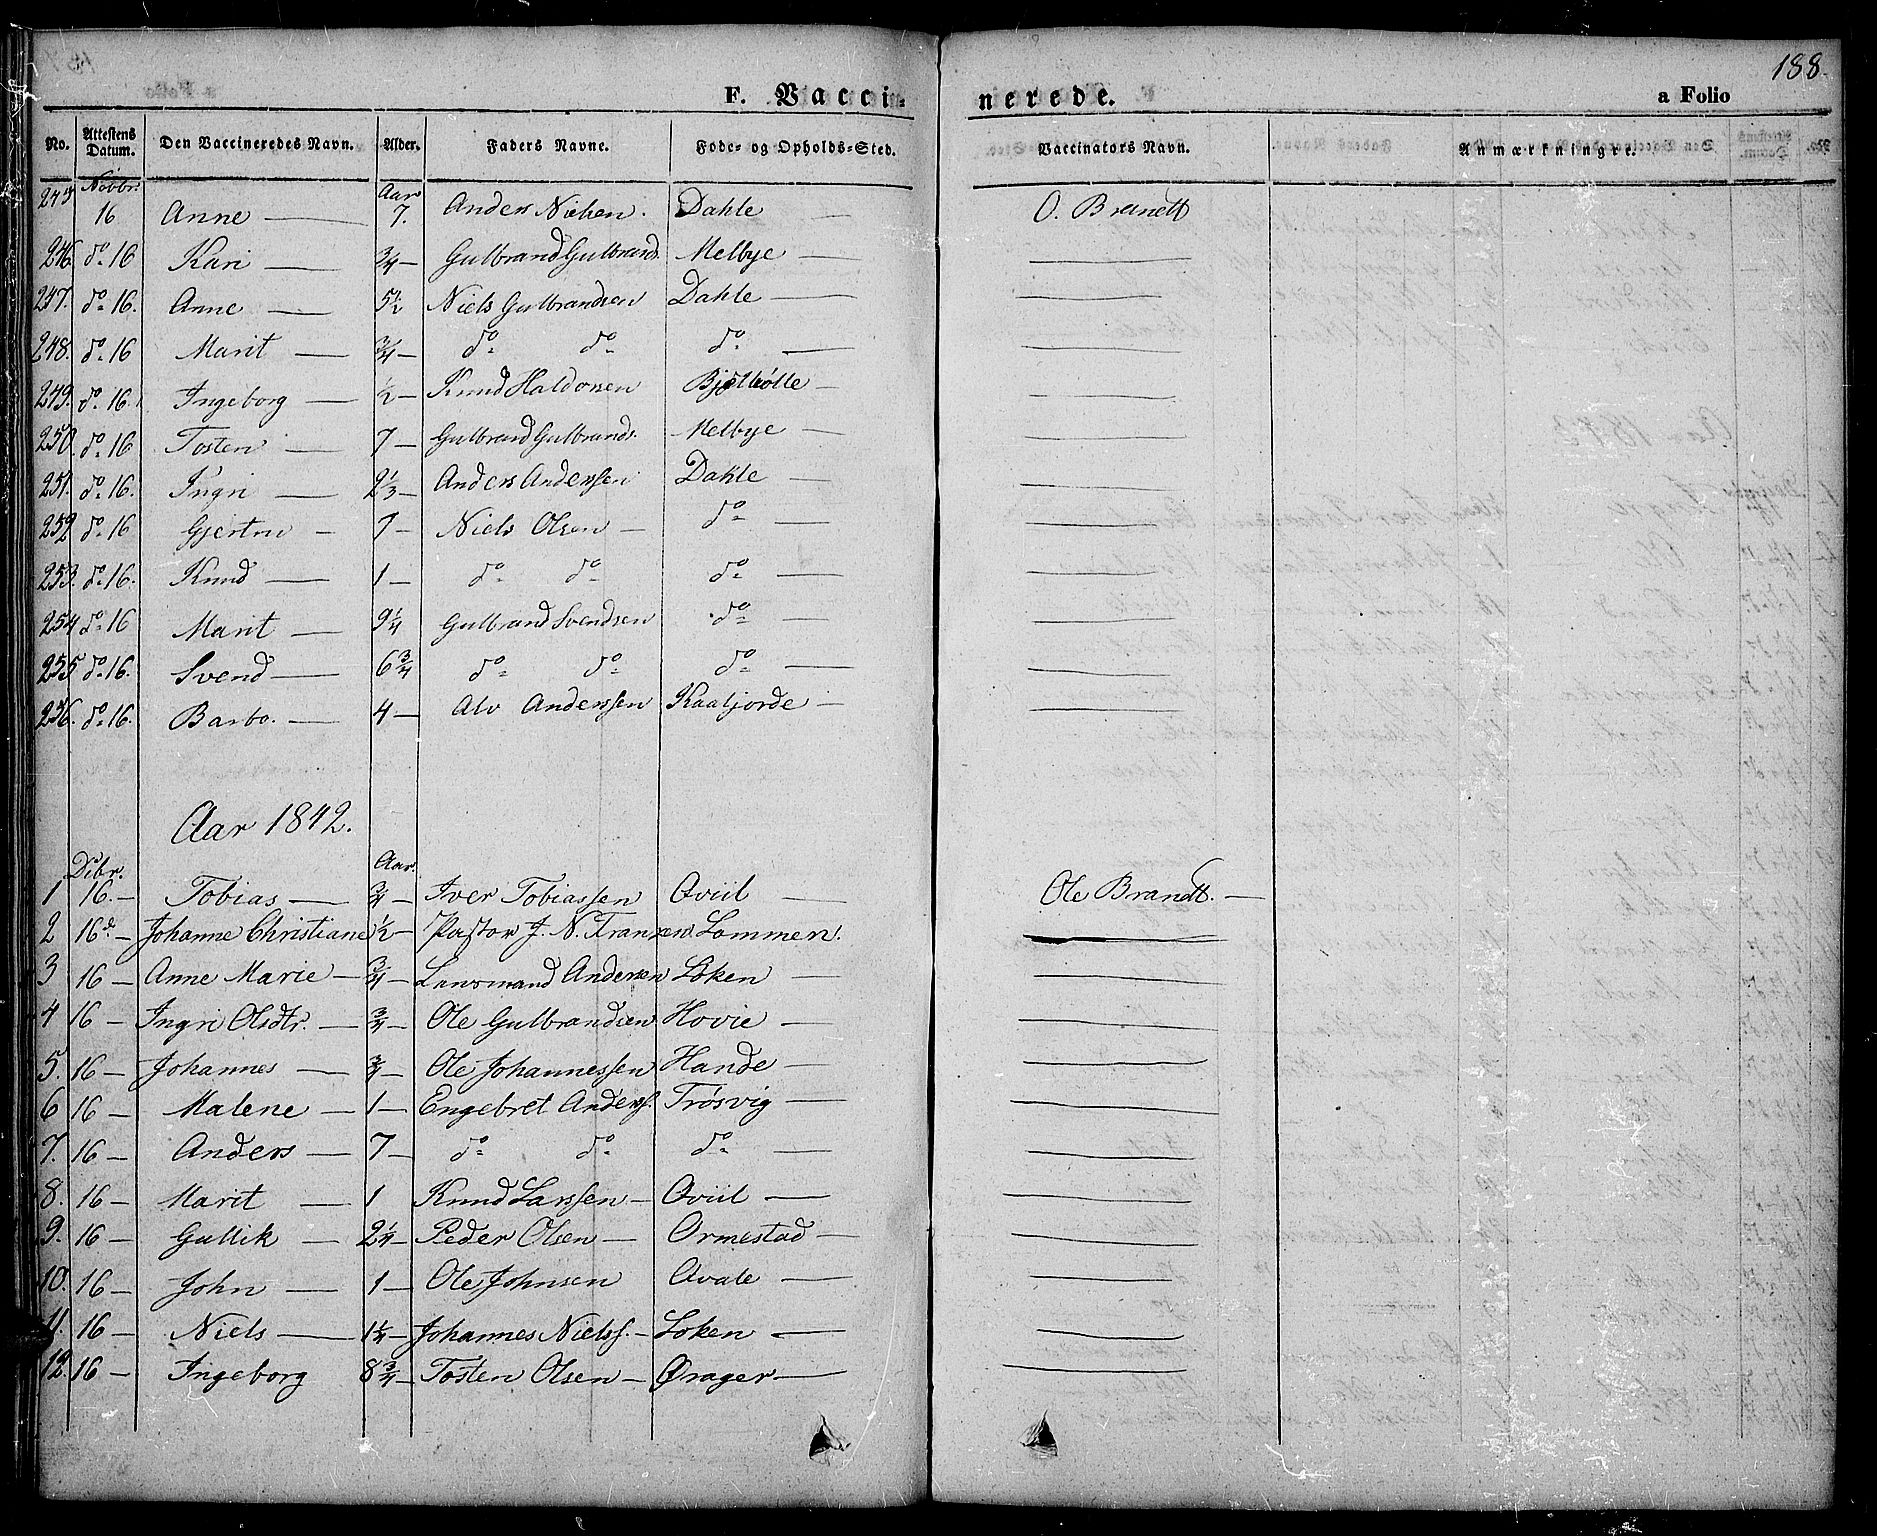 188.
F. Vaccinerede. a Folio
No. Attestens Datum. Den Vaccineredes Navn. Alder. Faders Navne. Føde- og Opholds-Sted. Vaccinators Navn. Anmærkninger.
Novbr. Aar
245 16 Anne — 7. Anders Nielsen. Dahle — O. Brandt
246. do 16 Kari — 3/4 — Gulbrand Gulbrands. Melbye — —
247. do 16. Anne — 5 1/2 Niels Gulbrandsen Dahle — —
248. do 16 Marit — 3/4 — do do do — —
249. do 16. Ingeborg — 1/2 — Knud Haldorsen — —
250. do 16 Tosten — 7 — Gulbrand Gulbrands. Melbye — —
251. do 16. Ingri — 2 1/3 — Anders Anderssen Dahle — —
252 do 16 Gjertru — 7 — Niels Olsen — do — —
253. do 16. Knud — 1 — do do do — —
254 do 16 Marit — 9 1/4 Gulbrand Svendsen do — —
255 do 16. Svend — 6 3/4 do do do — —
256. do 16. Barbo. — 4 — Alv Anderssen —
Aar 1842.
Dcbr. Aar.
1 16. — Tobias — 3/4 — Iver Tobiassen Qviil — Ole Brandt. —
2 16de — Johanne Christiane 1/2 — Pastor J. N. Franzen. Lommen. —
3 16 — Anne Marie — 3/4 — Lensmand Andersen Løken — —
4 16 — Ingri Olsdtr. — 3/4 — Ole Gulbrandsen Hovie — —
5. 16 — Johannes — 3/4 — Ole Johannessen Hande — —
6 16 — Malene — 1 — Engebret Anderss. Trøsvig — —
7. 16 — Anders — 7 — do do do — —
8. 16 — Marit — 1 Knud Larssen — Qviil — —
9. 16 — Gullik — 2 1/4 — Peder Olsen — Ormestad — —
10. 16 — John — 1 — Ole Johnsen Qvale — —
11. 16 — Niels — 1 1/4 — Johannes Nielss. — Løken — —
12. 16 — Ingeborg 8 3/4 — Tosten Olsen — Ørager — —